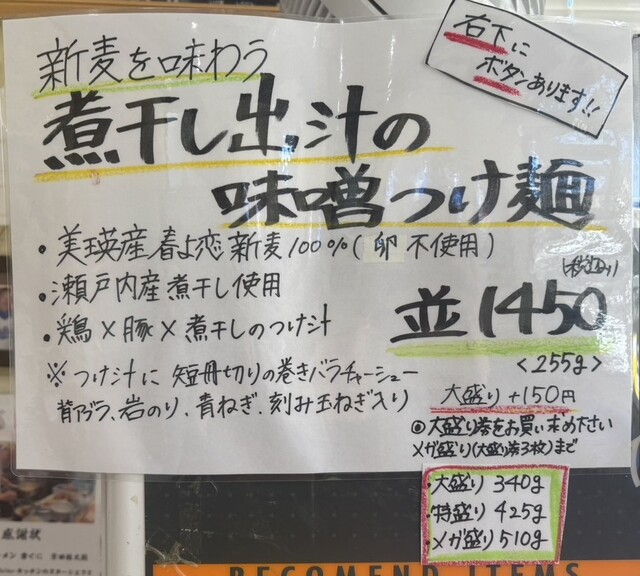 新麦を味わう
煮干し出汁の
味噌つけ麺
右下に
ボタンあります!!
・美瑛産春よ恋新麦100%(卵不使用)
・瀬戸内産煮干し使用
・鶏×豚×煮干しのつけ汁
(税込)
並1450
<255g>
※つけ汁に短冊切りの巻きバラチャーシュー
背アブラ、岩のり、青ねぎ、刻み玉ねぎ入り
大盛り+150円
◎大盛り券をお買い求め下さい
メガ盛り(大盛り券3枚)まで
・大盛り 340g
・特盛り 425g
・メガ盛り 510g
感謝状
RECOMEND ITEMS